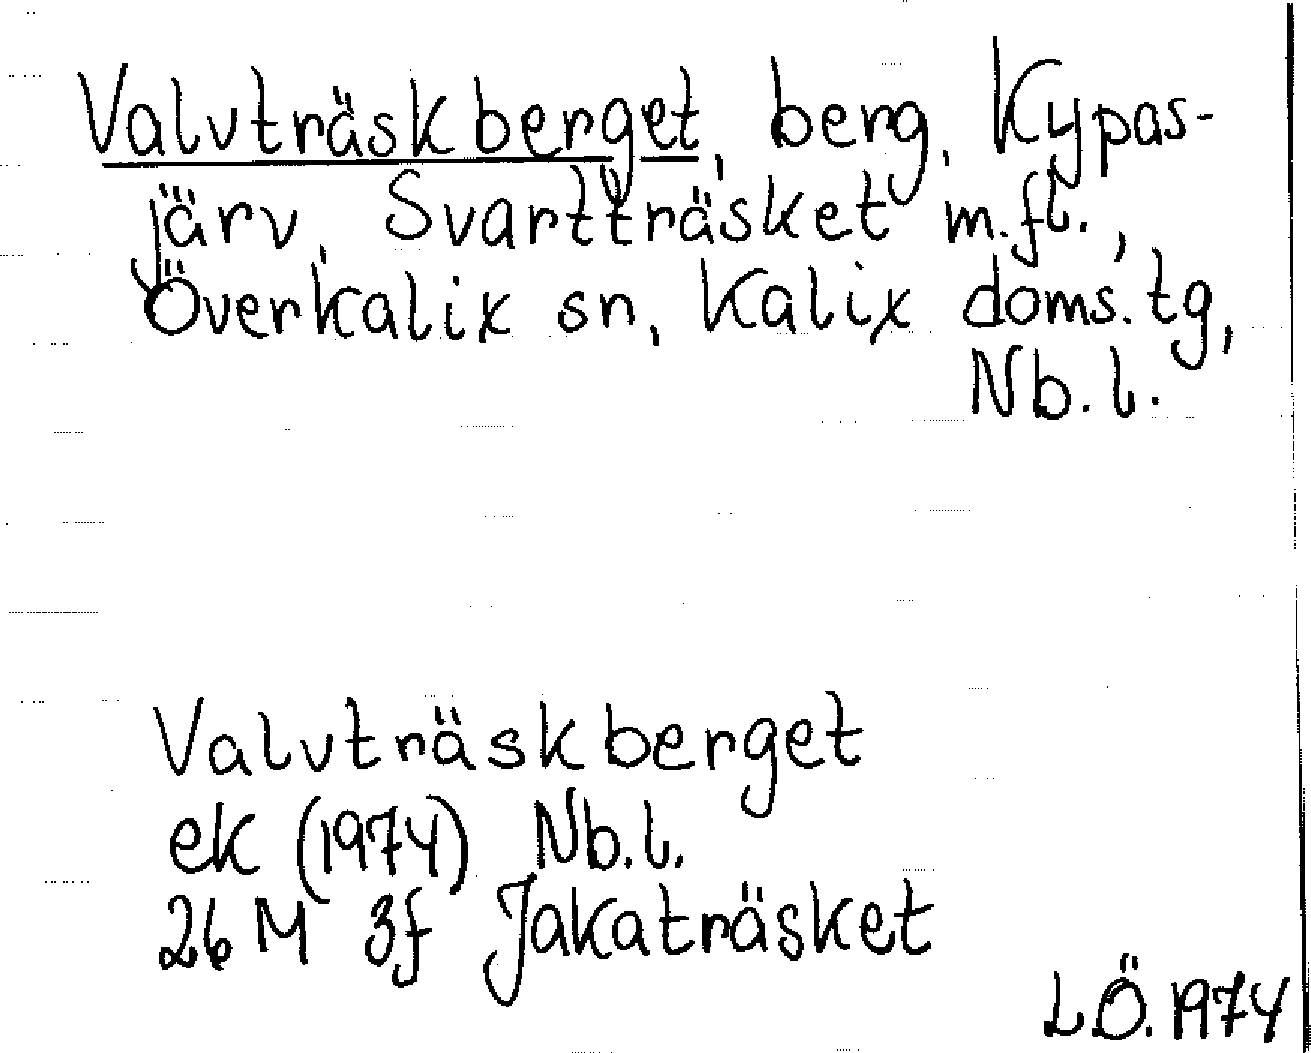 Valvträskberget, berg, Kypas-
järv, Svartträsket m.fl.,
Överkalix sn, Kalix doms.tg,
Nb.l.
Valvträskberget
ek (1974) Nb.l.
26 M 3f Jakaträsket
LÖ.1974